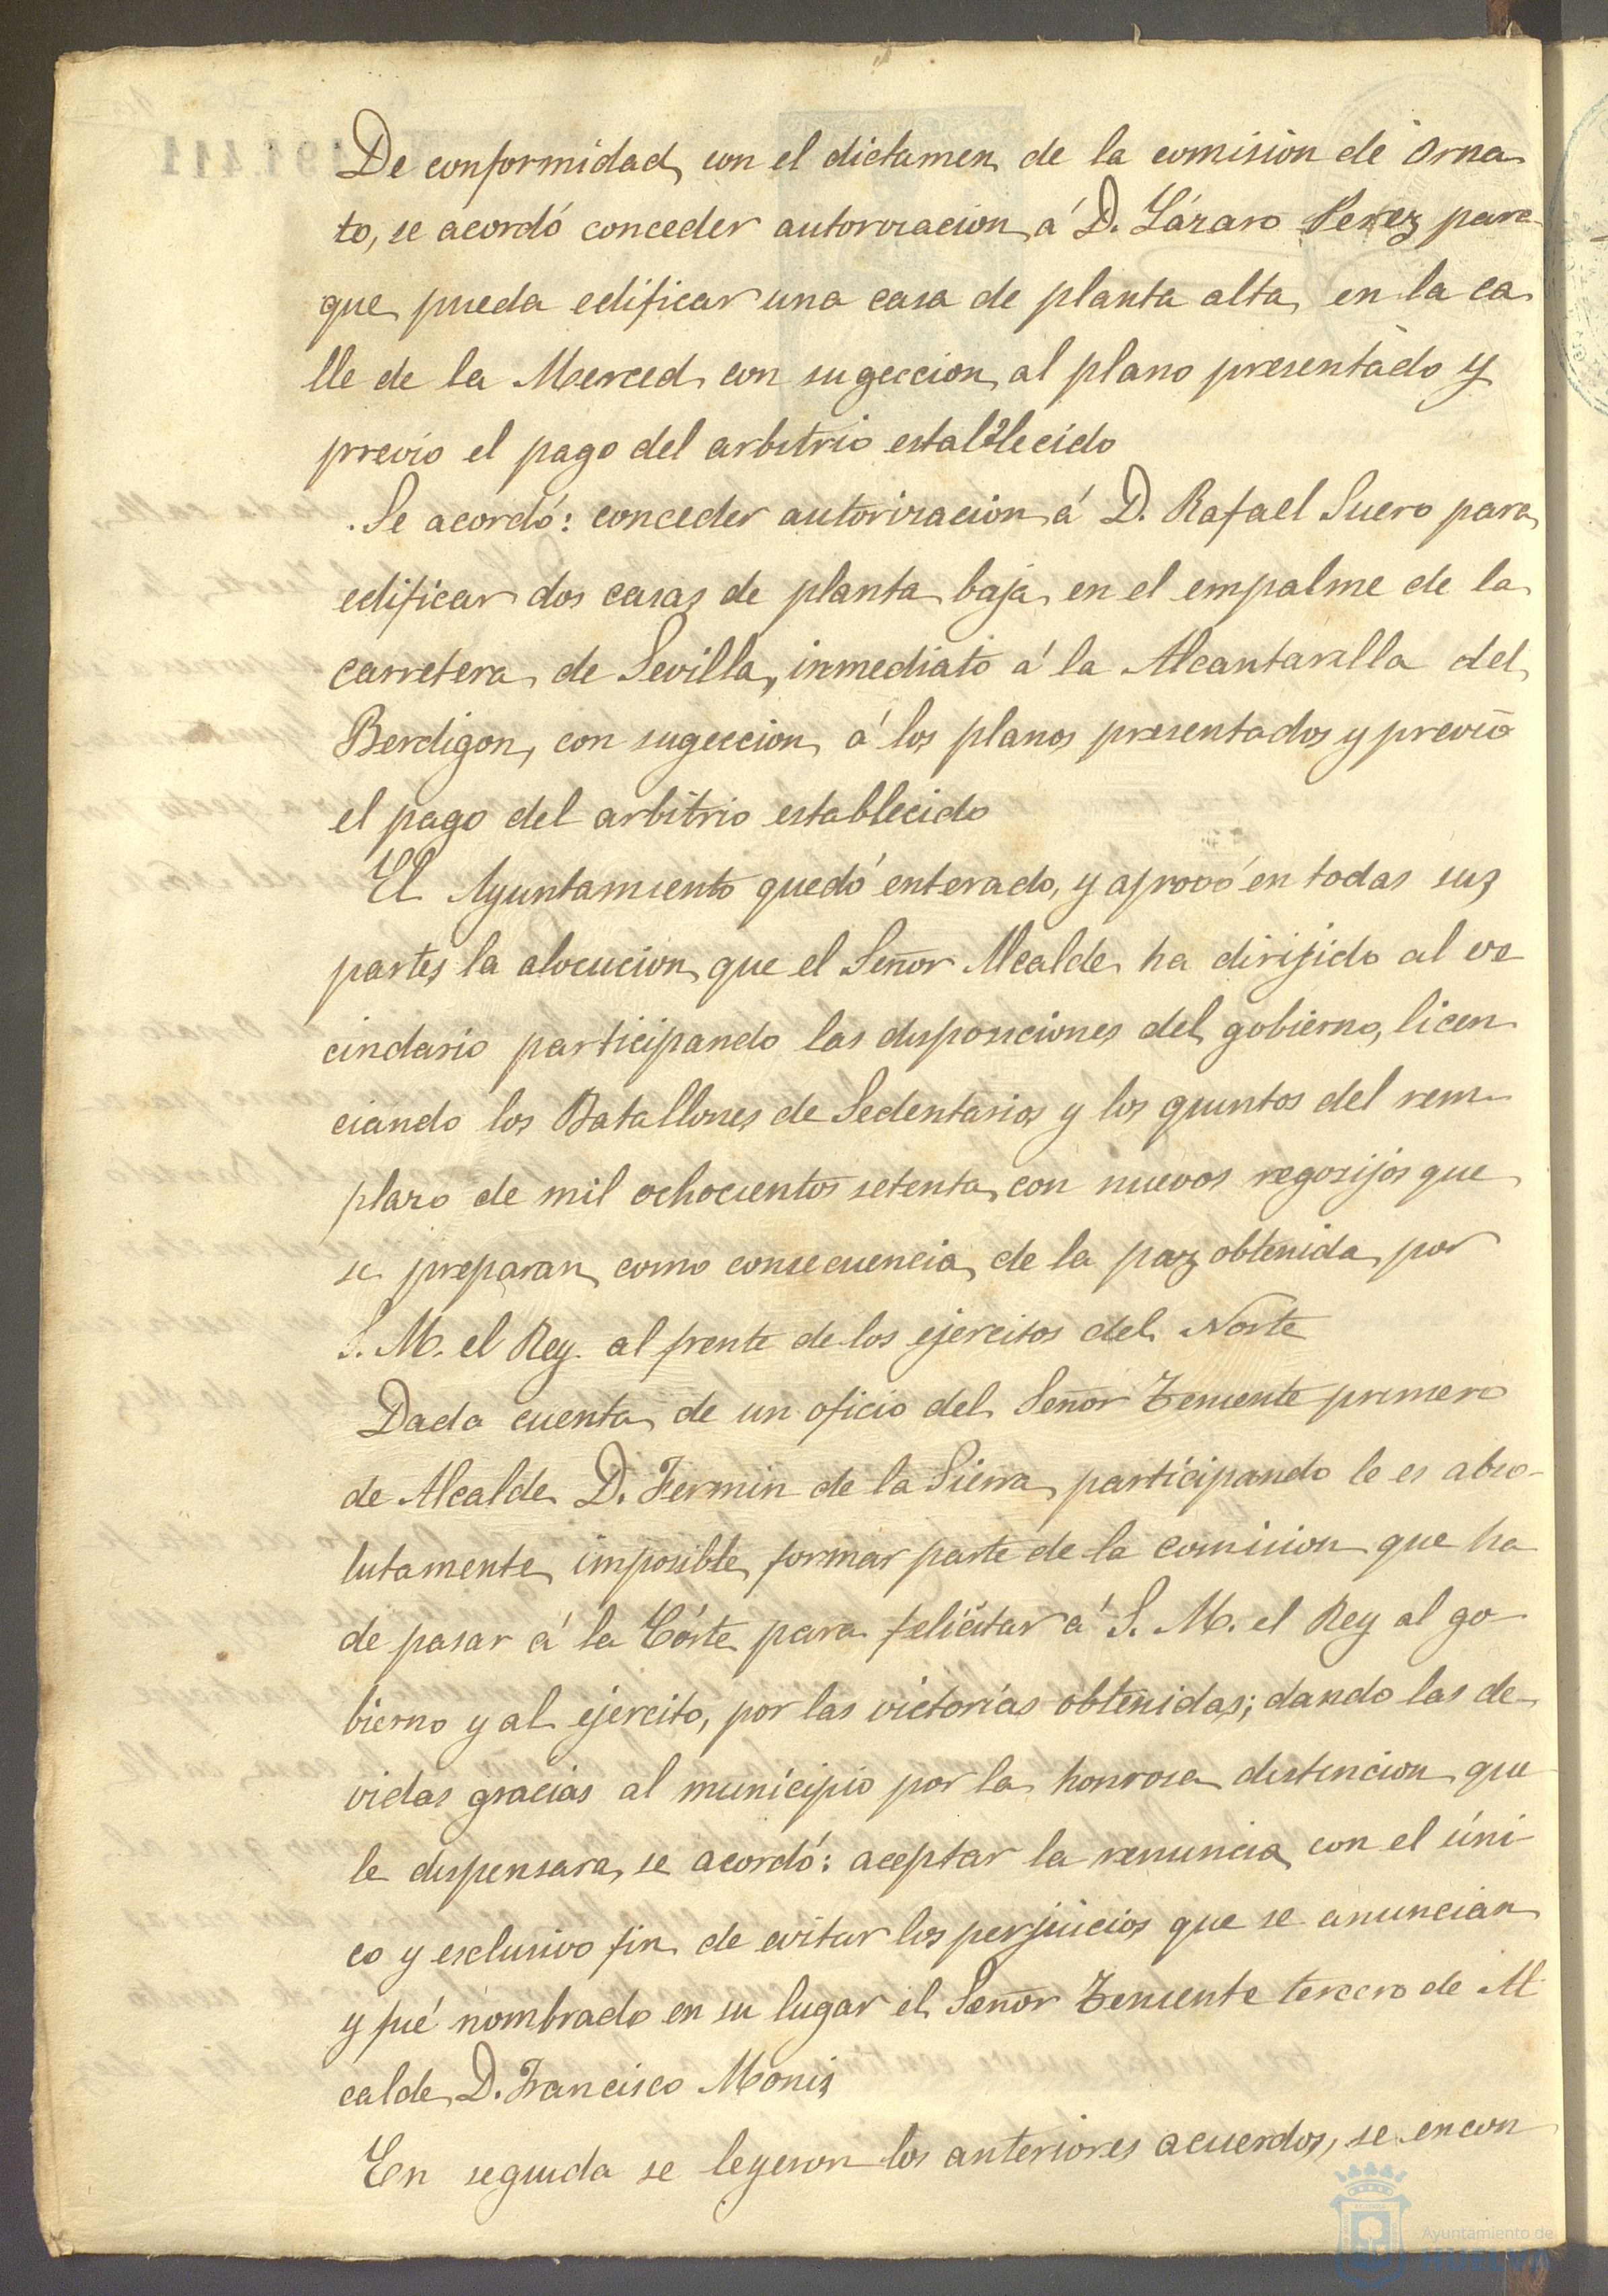 De conformidad con el dictamen de la comision de Orna
to, se acordó conceder autorizacion á D. Lázaro Perez para
que pueda edificar una casa de planta alta en la ca
lle de la Merced con sugeccion al plano presentado y
previo el pago del arbitrio establecido
Se acordó: conceder autorizacion á D. Rafael Suero para
edificar dos casas de planta baja en el empalme de la
carretera de Sevilla, inmediato á la Alcantarilla del
Berdigon, con sugeccion á los planos presentados y previo
el pago del arbitrio establecido
El Ayuntamiento quedó enterado, y aprovó en todas sus
partes la alocucion que el Señor Alcalde ha dirijido al ve
cindario participando las disposiciones del gobierno, licen
ciando los Batallones de Sedentarios y los quintos del rem-
plazo de mil ochocientos setenta, con nuevos regosijos que
se preparan como consecuencia de la paz obtenida por
S. M. el Rey al frente de los ejercitos del Norte
Dada cuenta de un oficio del Señor Teniente primero
de Alcalde D. Fermin de la Sierra participando le es abso-
lutamente imposible formar parte de la comision que ha
de pasar á la Córte para felicitar á S. M. el Rey al go-
bierno y al ejercito, por las victorias obtenidas; dando las de
vidas gracias al municipio por la honrosa distincion que
le dispensara, se acordó: aceptar la renuncia con el úni-
co y esclusivo fin de evitar los perjuicios que se anuncian
y fué nombrado en su lugar el Señor Teniente tercero de Al
calde D. Francisco Moniz
En seguida se leyeron los anteriores acuerdos, se encon
Ayuntamiento de
HUELVA